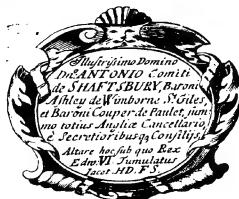 Illustrissimo Domino
Dno. ANTONIO Comiti
de SHAFTSBURY, Baroni
Ashley de Winborne St. Giles,
et Baroni Couper de Paulet, sum
mo totius Angliæ Cancellario,
è Secretioribusq3 Consilijs,
Altare hoc sub quo Rex
Edw. VI. Tumulatus
Iacet HD. F S.